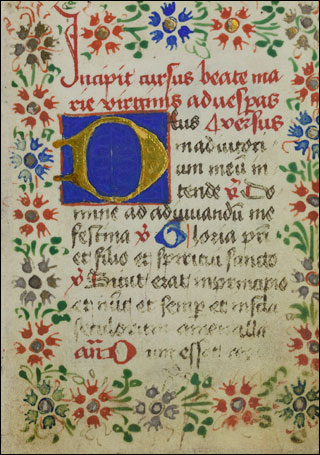 Incipit cursus beate ma
rie virginis ad vesperas
Deus versus
in adiutori
um meum in
tende ℣ Do
mine ad adiuvandum me
festina ℣ Gloria pri
et filio et spiritui sancto
℣ Sicut erat in principio
et nunc et semper et in secula
seculorum amen alla
añ Dum esset